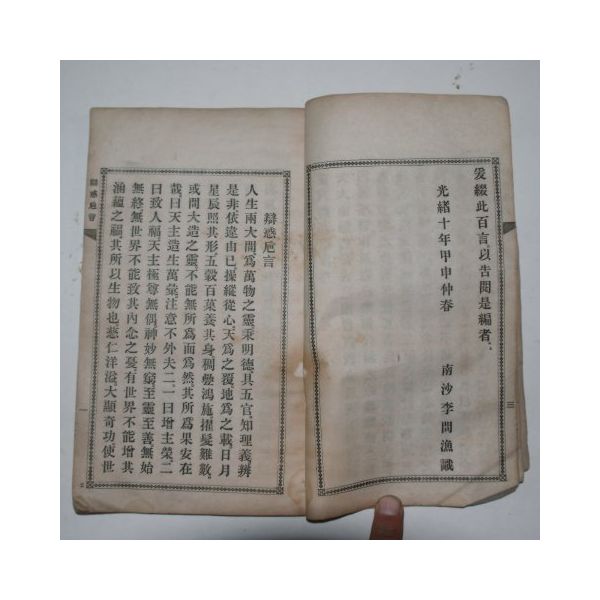 爰綴此百言以告閱是編者
光緒十年甲申仲春
南沙李問漁識
三
辯惑卮言
人生兩大間爲萬物之靈秉明德具五官知理義辨
是非依違由已操縱從心天爲之覆地爲之載日月
星辰照其形五穀百菓養其身稠疊鴻施擢髮難數
或問大造之靈不能無所爲而爲然其所爲果安在
哉曰天主造生萬彙注意不外夫二一曰增主榮二
曰致人福天主極尊無偶神妙無窮至靈至善無始
無終無世界不能致其內念之憂有世界不能增其
涵蘊之福其所以生物也慈仁洋溢大顯奇功使世
辯惑卮言
一